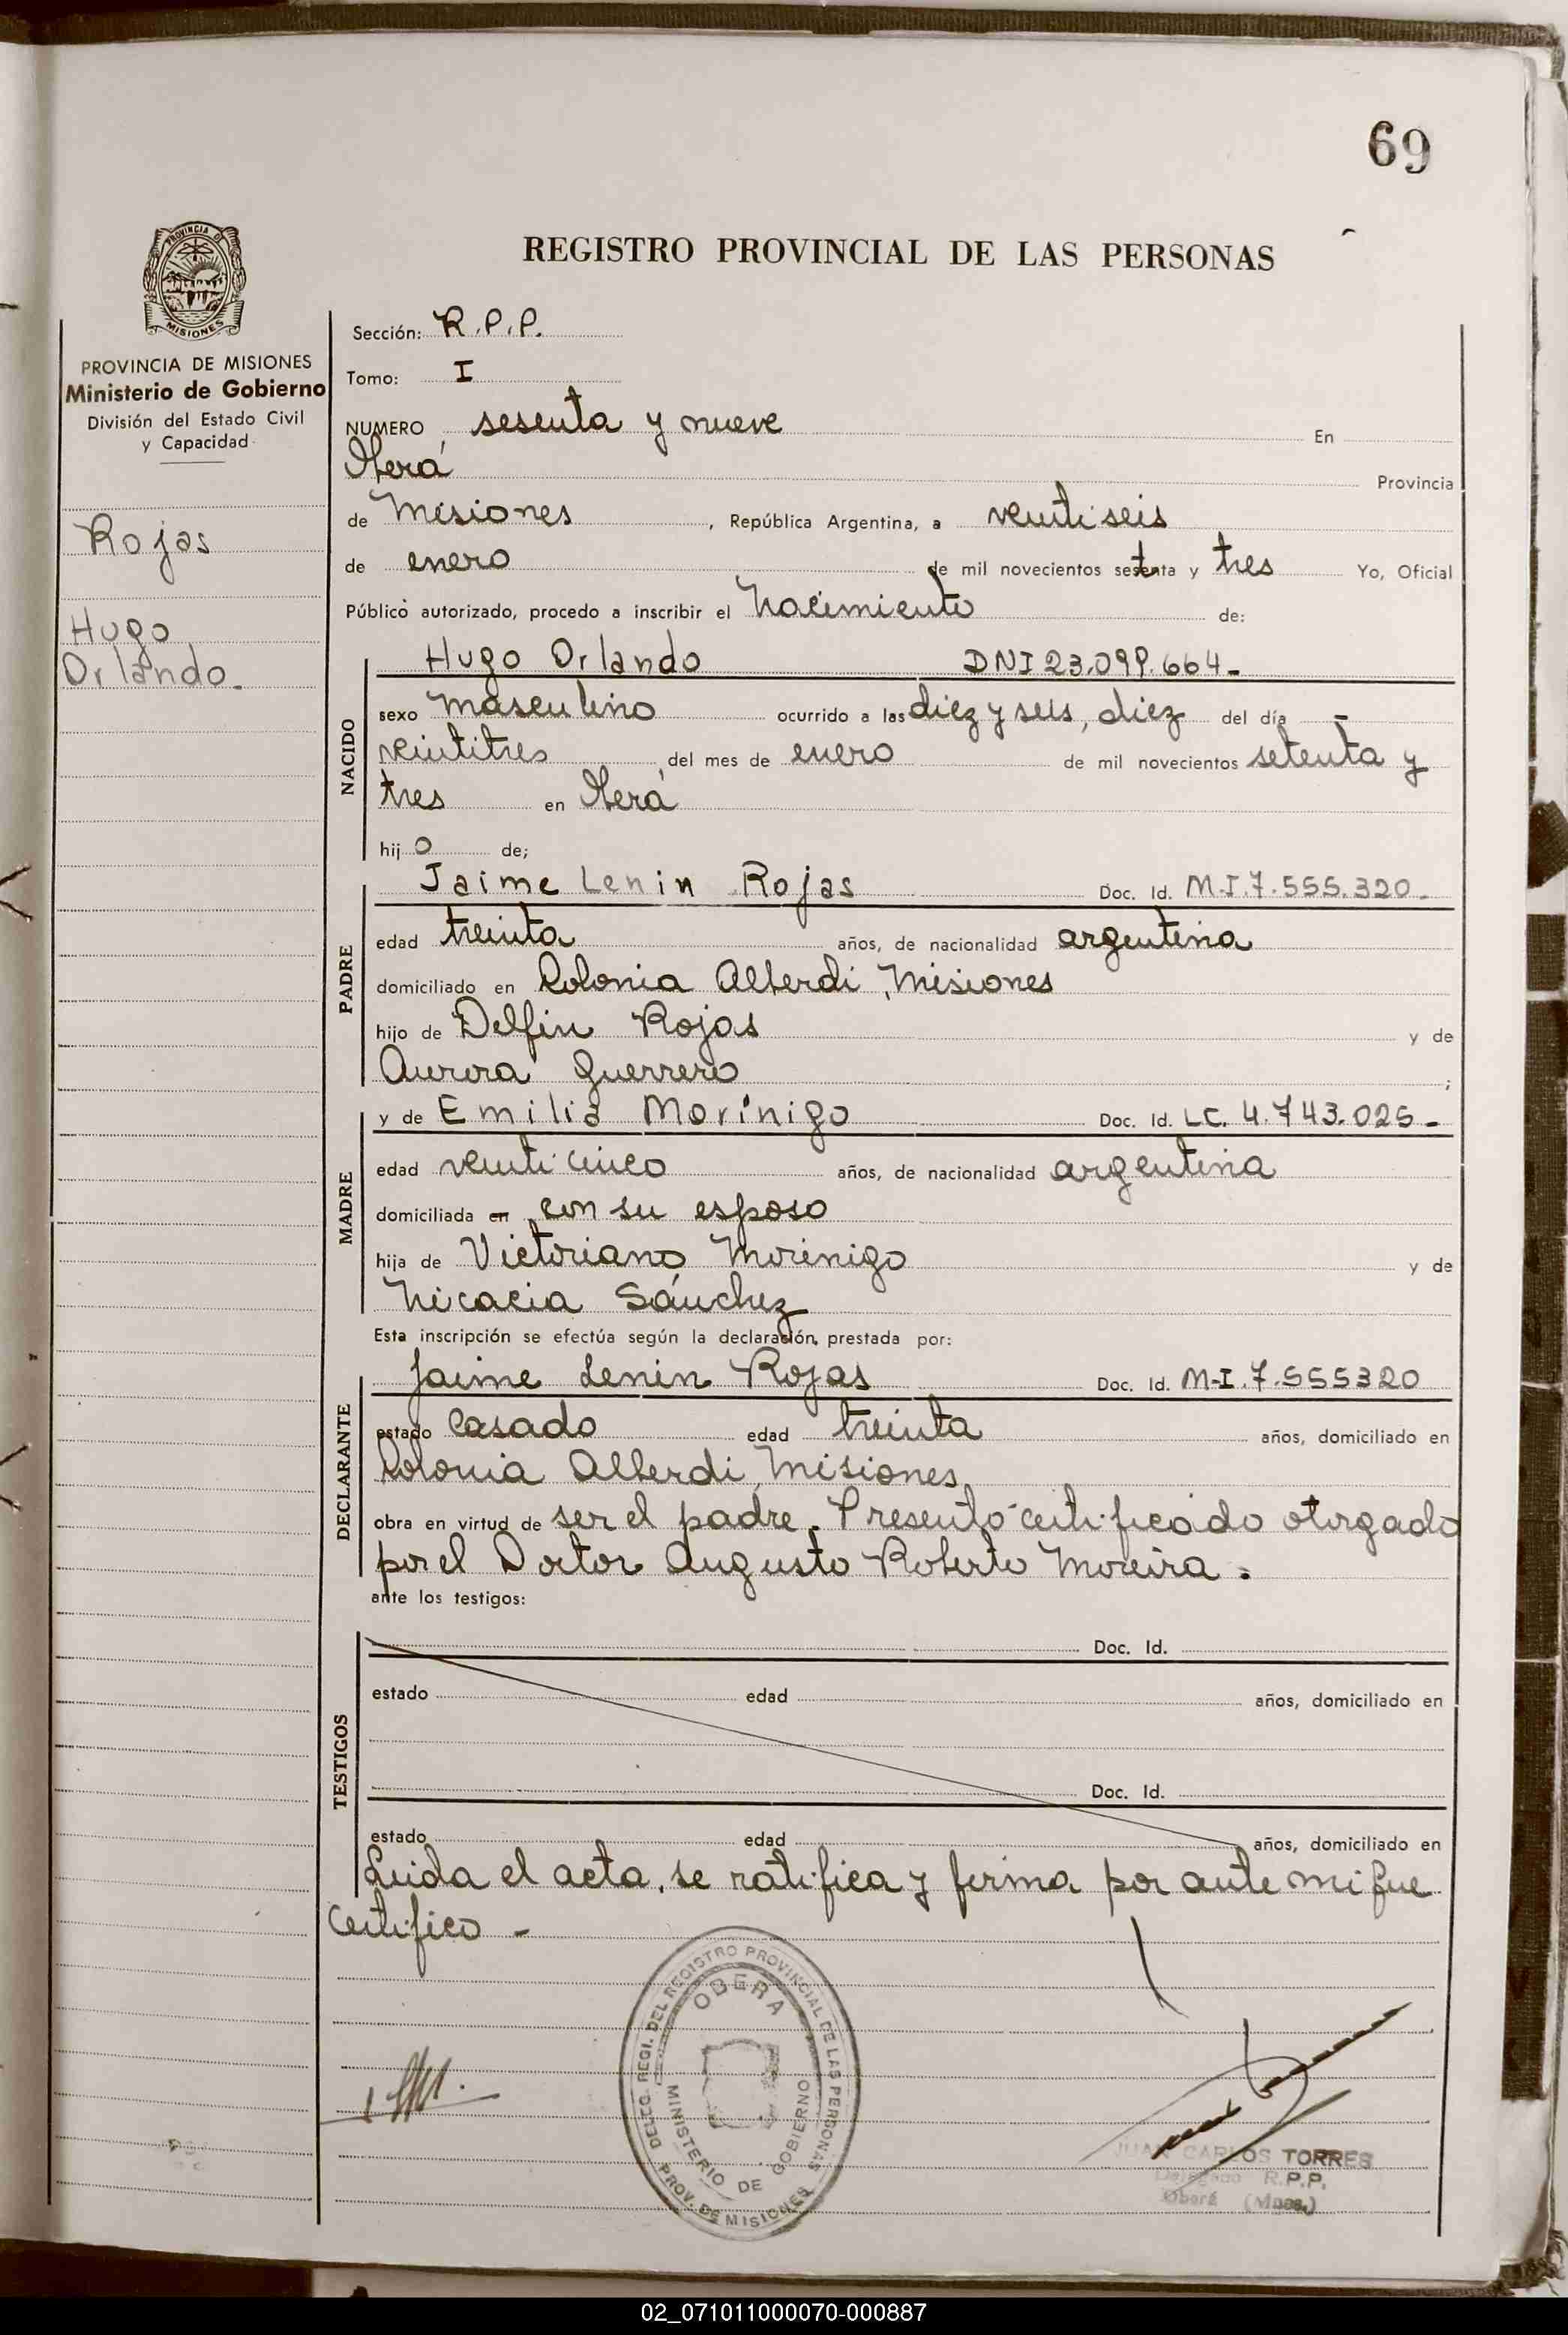 69
PROVINCIA DE
MISIONES
REGISTRO PROVINCIAL DE LAS PERSONAS
PROVINCIA DE MISIONES
Ministerio de Gobierno
División del Estado Civil
y Capacidad
Rojas
Hugo
Orlando.
Sección: R.P.P.
Tomo: I
NUMERO sesenta y nueve En
Oberá Provincia
de Misiones, República Argentina, a veintiseis
de enero de mil novecientos setenta y tres Yo, Oficial
Público autorizado, procedo a inscribir el Nacimiento de:
NACIDO
Hugo Orlando DNI 23.099.664-
sexo masculino ocurrido a las diez y seis, diez del día -
veintitres, del mes de enero de mil novecientos setenta y
tres en Oberá
hijo de;
PADRE
Jaime Lenin Rojas Doc. Id. M.I.7.555.320-
edad treinta años, de nacionalidad argentina
domiciliado en Colonia Alberdi, Misiones
hijo de Delfin Rojas y de
Aurora Guerrero ;
MADRE
y de Emilia Morínigo Doc. Id. LC. 4.743.025-
edad veinticinco años, de nacionalidad argentina
domiciliada en con su esposo
hija de Victoriano Morinigo y de
Nicacia Sánchez
Esta inscripción se efectúa según la declaración, prestada por:
DECLARANTE
Jaime Lenin Rojas Doc. Id. M-I.7.555320
estado casado edad treinta años, domiciliado en
Colonia Alberdi, Misiones,
obra en virtud de ser el padre. Presentó certificado otorgado
por el Doctor Augusto Roberto Moreira.
ante los testigos:
TESTIGOS
Doc. Id.
estado edad años, domiciliado en
Doc. Id.
estado edad años, domiciliado en
Leida el acta, se ratifica y firma por ante mi que
certifico -
DELEG. REGI. DEL REGISTRO PROVINCIAL DE LAS PERSONAS
OBERA
MINISTERIO DE GOBIERNO
PROV. DE MISIONES
JUAN CARLOS TORRES
Delegado R.P.P.
Oberá (Mnes.)
02_071011000070-000887